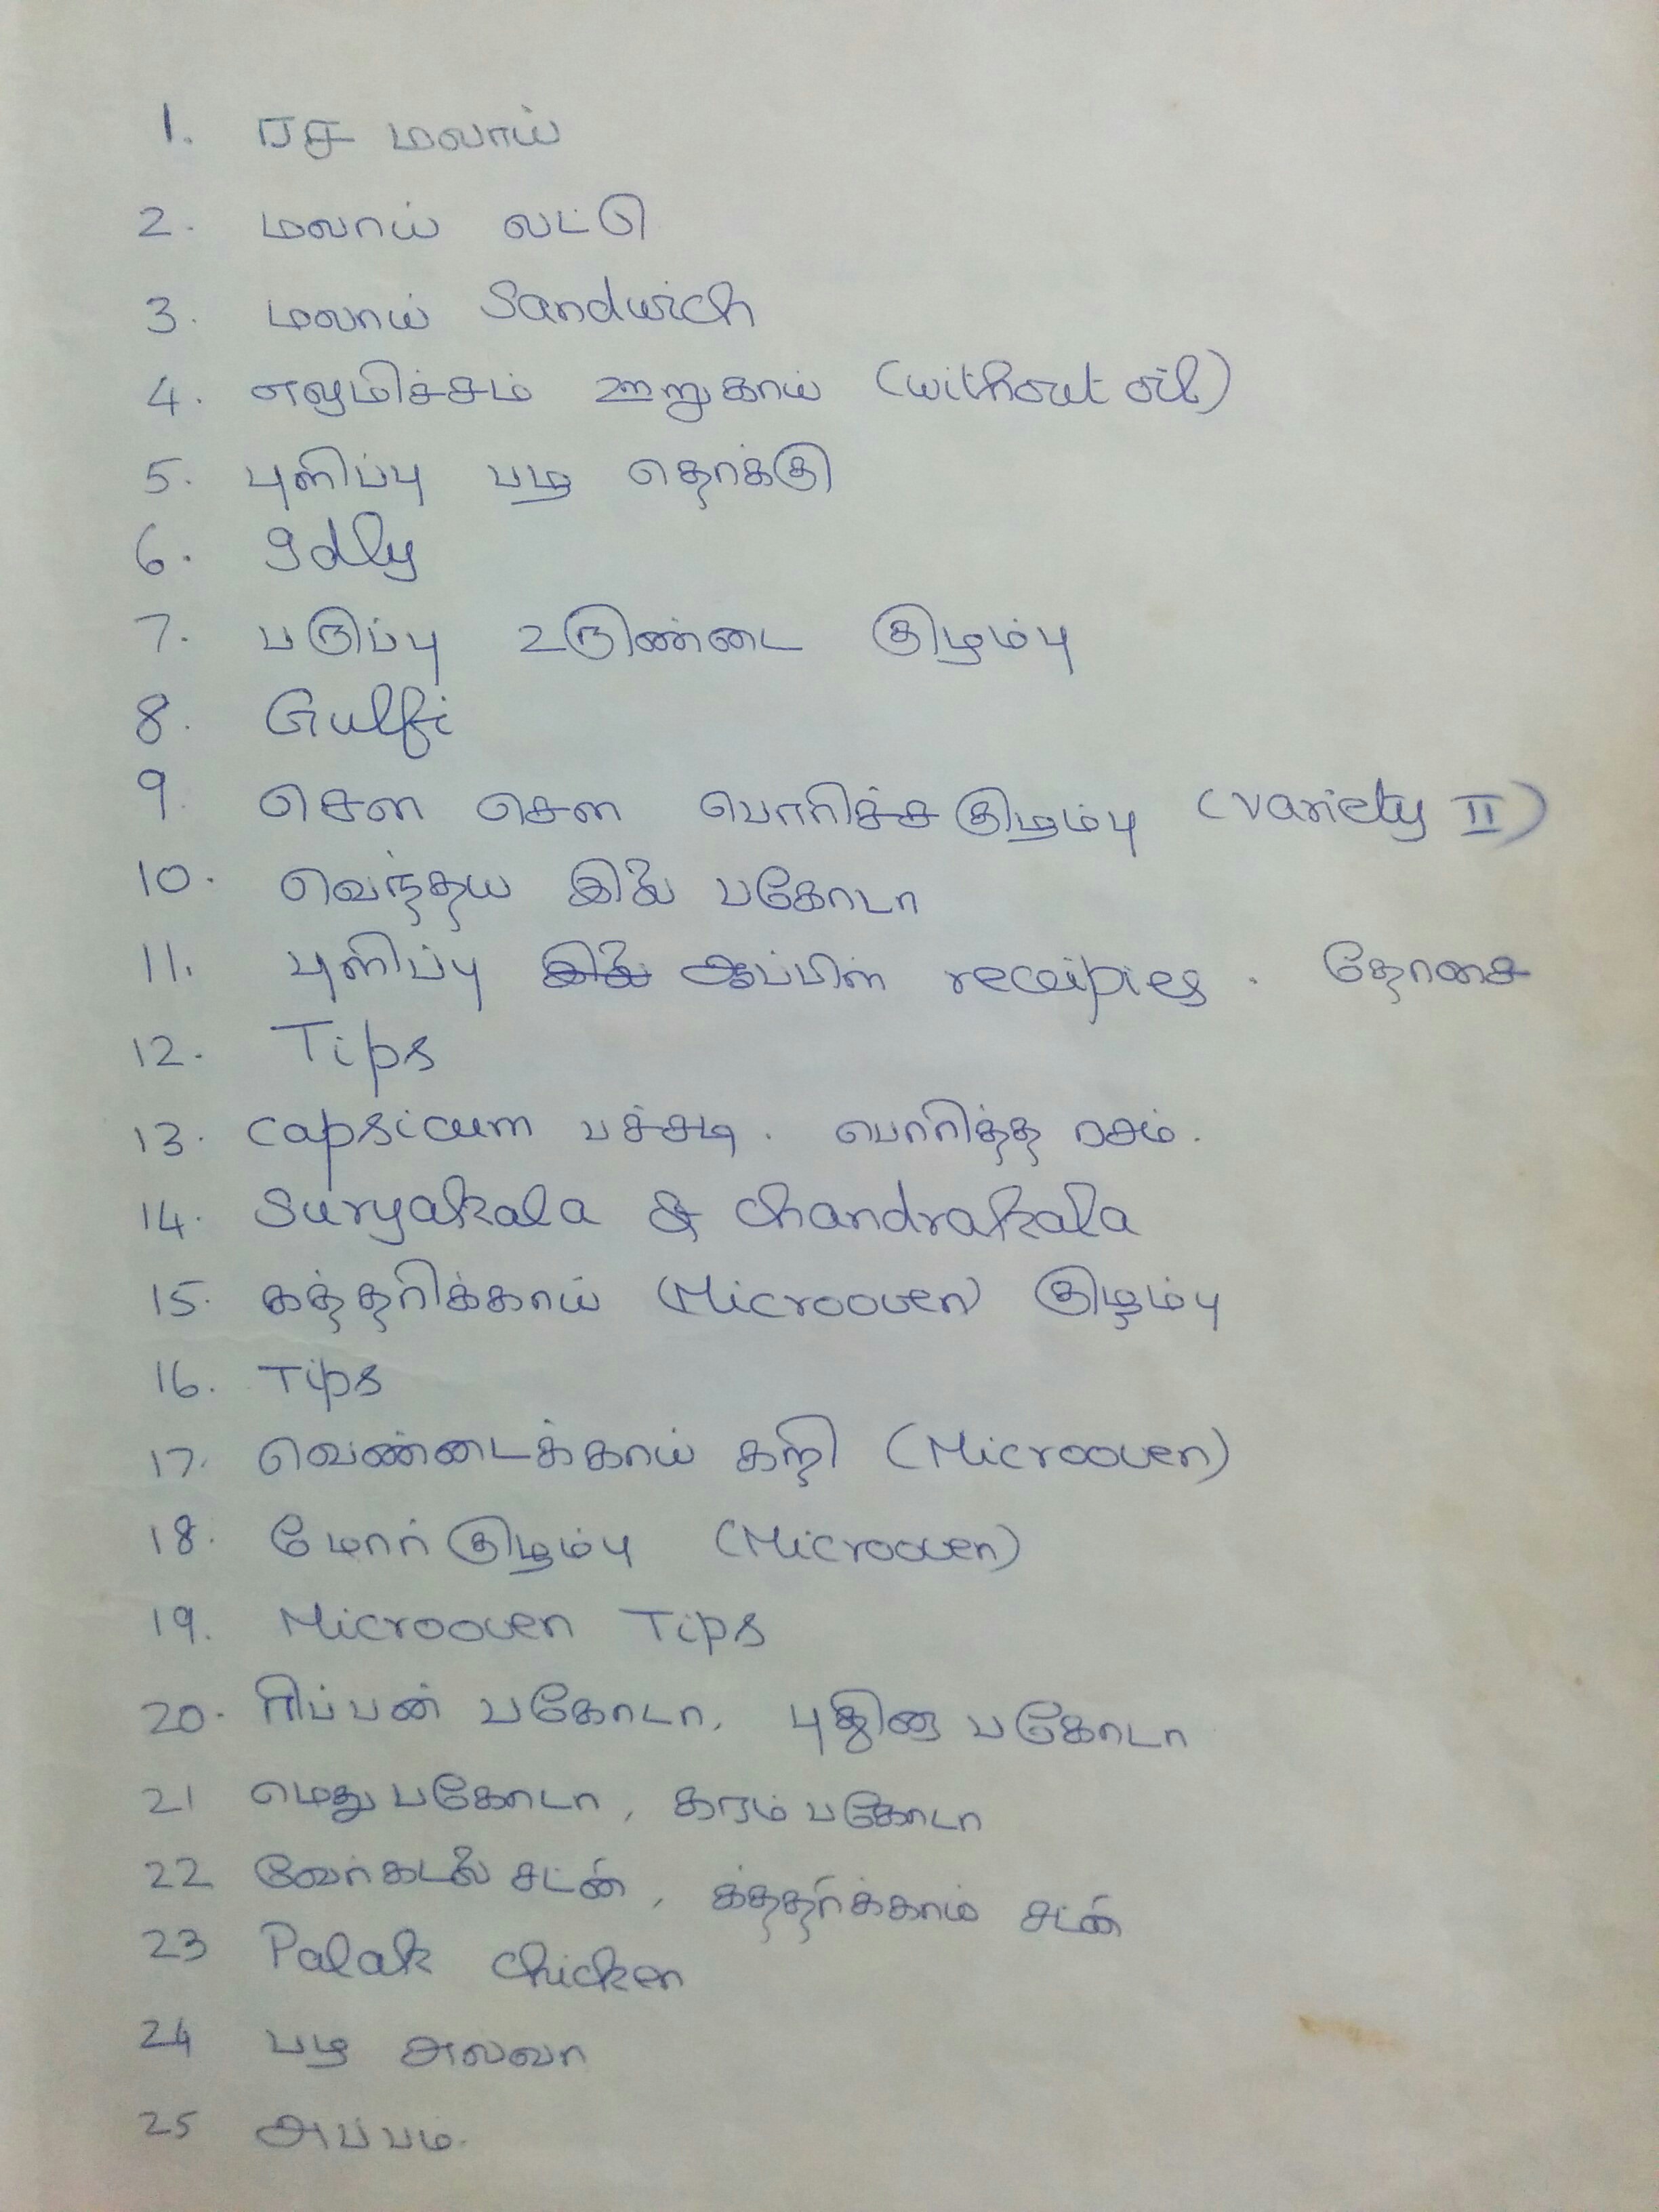 1. ரச மலாய்
2. மலாய் லட்டு
3. மலாய் Sandwich
4. எலுமிச்சம் ஊறுகாய் (without oil)
5. புளிப்பு பழ தொக்கு
6. Idly
7. பருப்பு உருண்டை குழம்பு
8. Gulfi
9. சௌ சௌ பொரிச்ச குழம்பு (variety II)
10. வெந்தய இலை பகோடா
11. புளிப்பு ஆப்பிள் receipies. தோசை
12. Tips
13. Capsicum பச்சடி. பொரித்த ரசம்.
14. Suryakala & Chandrakala
15. கத்தரிக்காய் (Microoven) குழம்பு
16. Tips
17. வெண்டைக்காய் கறி (Microoven)
18. மோர் குழம்பு (Microoven)
19. Microoven Tips
20. ரிப்பன் பகோடா, புதினா பகோடா
21 மெது பகோடா, காரம் பகோடா
22 வேர்கடலை சட்னி, கத்தரிக்காய் சட்னி
23 Palak chicken
24 பழ அல்வா
25 அப்பம்.